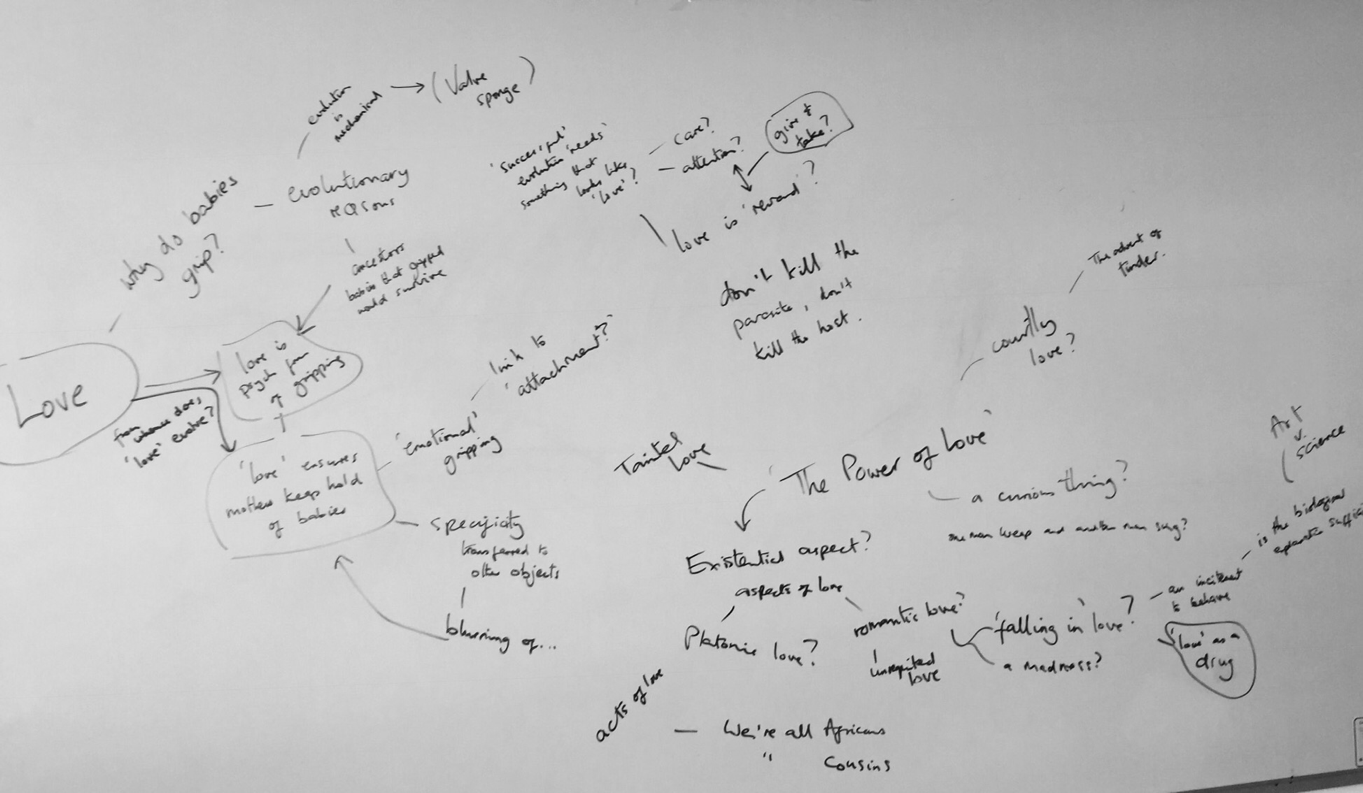 Love
why do babies
grip?
evolution
is
mechanical
(Valve
sponge)
evolutionary
reasons
ancestors
babies that gripped
would survive
love is
psych form
of gripping
from
whence does
'love' evolve?
'love' ensures
mothers keep hold
of babies
'emotional'
gripping
link to
'attachment?'
specificity
transferred to
other objects
blurring of...
'successful'
evolution 'needs'
something that
looks like
'love'?
care?
attention?
give &
take?
love is 'reward'?
don't kill the
parasite, don't
kill the host.
The advent of
Tinder.
courtly
love?
Tainted
love
'The Power of Love'
a curious thing?
one man weep and another man sing?
Existential aspect?
aspects of love
Platonic love?
romantic love?
unrequited
love
'falling in' love?
a madness?
an incitement
to behave
'love' as a
drug
is the biological
Art
v.
science
acts of love
We're all Africans
" Cousins